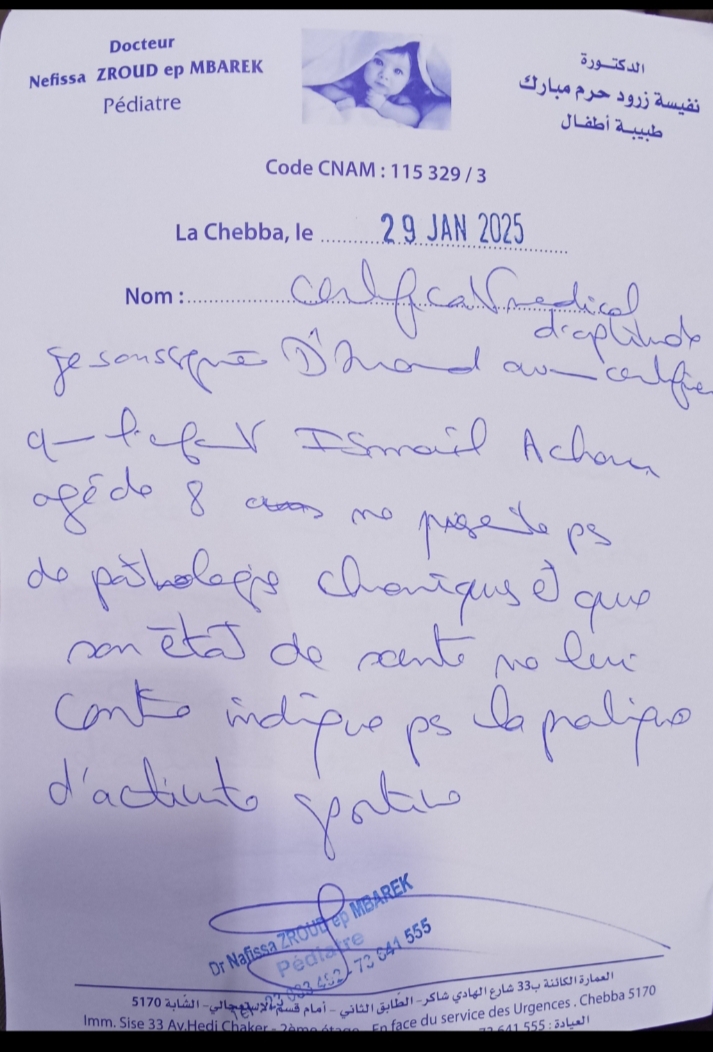 Docteur
Nefissa ZROUD ep MBAREK
Pédiatre
الدكتـورة
نفيسة زرود حرم مبارك
طبيبة أطفـال
Code CNAM : 115 329 / 3
La Chebba, le 29 JAN 2025
Nom : certificat medical
d'aptitude
Je soussigné Dr Zroud certifie
q l'enfant Ismail Achour
agé de 8 ans ne présente ps
de pathologie chronique et que
son état de santé ne lui
contre indique ps la pratique
d'activité sportive
Dr Nafissa ZROUD ep MBAREK
Pédiatre
73 641 555
العمارة الكائنة ب33 شارع الهادي شاكر - الطابق الثاني - أمام قسم الإستعجالي - الشابة 5170
Imm. Sise 33 Av.Hedi Chaker - 2ème étage En face du service des Urgences . Chebba 5170
العيادة : 73 641 555